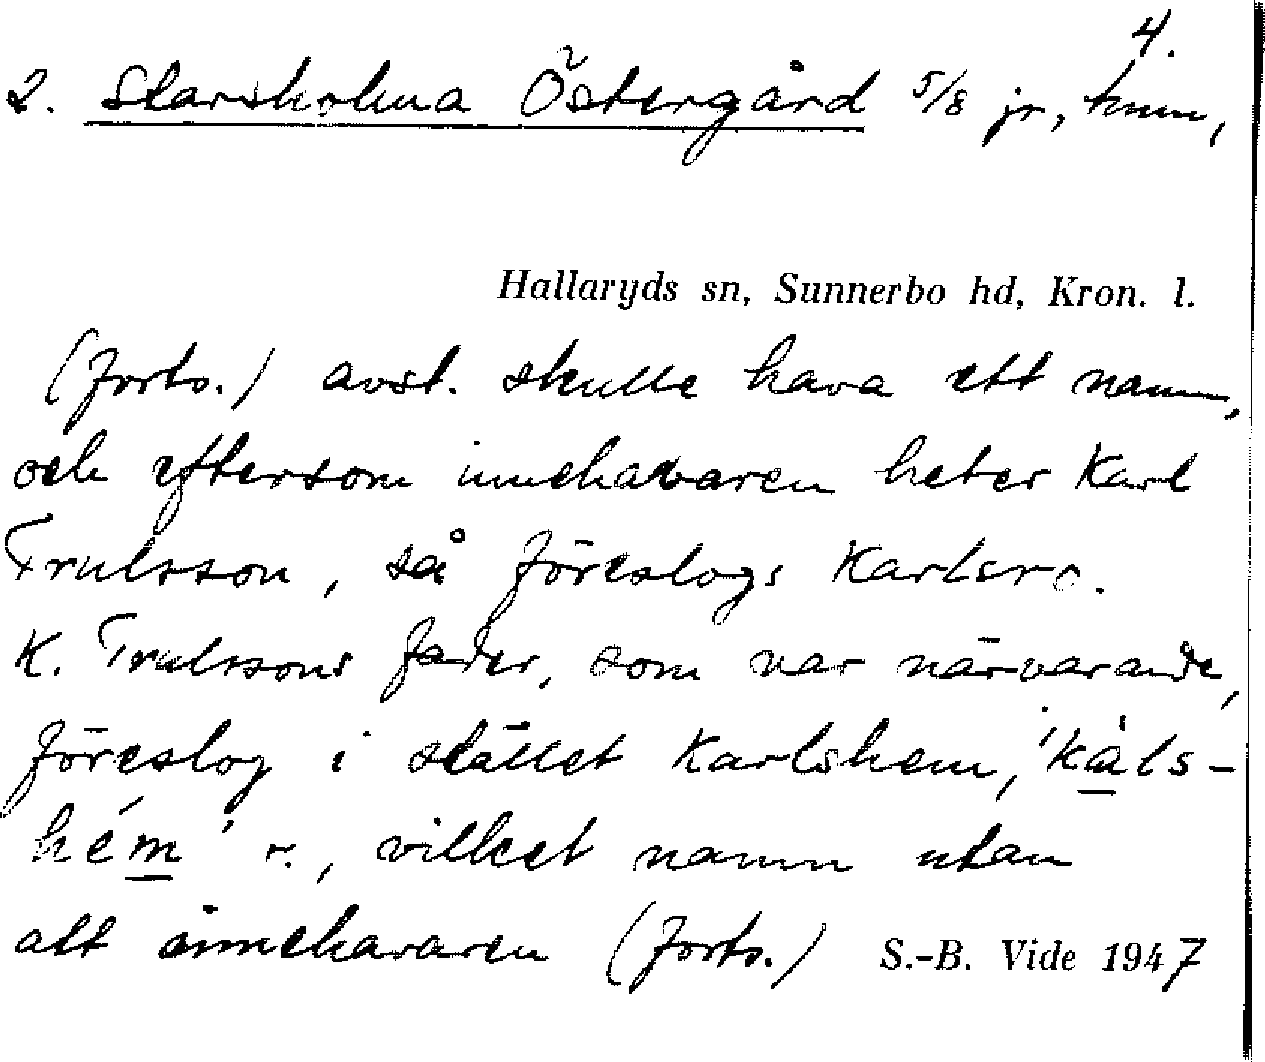 4.
2. Starsholma Östergård 5/8 jr, hmn,
Hallaryds sn, Sunnerbo hd, Kron. l.
(forts.) avst. skulle hava ett namn,
och eftersom innehavaren heter Karl
Trulsson, så föreslogs Karlsro.
K. Trulssons fader, som var närvarande,
föreslog i stället Karlshem, 'kàls-
hém' r., vilket namn utan
att innehavaren (forts.) S.-B. Vide 1947